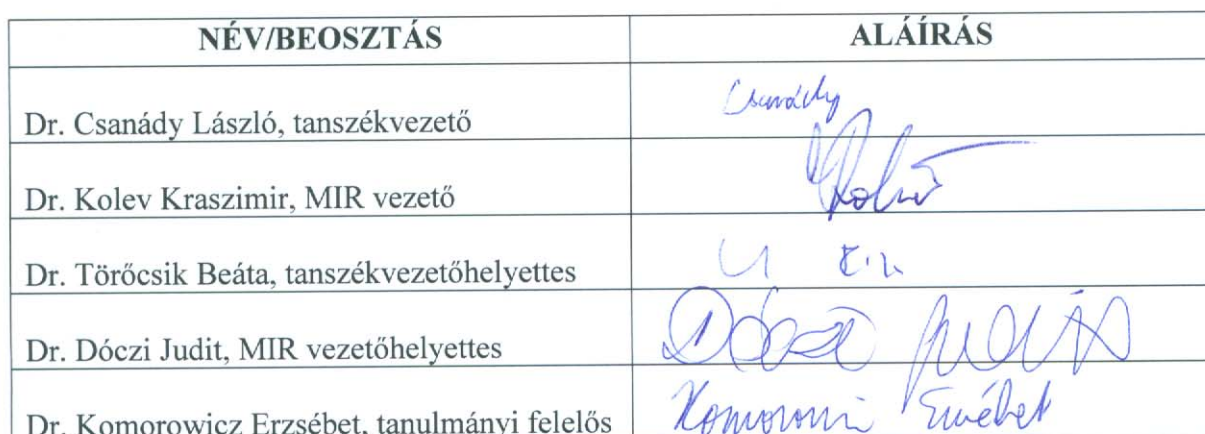 NÉV/BEOSZTÁS ALÁÍRÁS
Dr. Csanády László, tanszékvezető Csanády
Dr. Kolev Kraszimir, MIR vezető
Dr. Törőcsik Beáta, tanszékvezetőhelyettes
Dr. Dóczi Judit, MIR vezetőhelyettes Dóczi Judit
Dr. Komorowicz Erzsébet, tanulmányi felelős Erzsébet